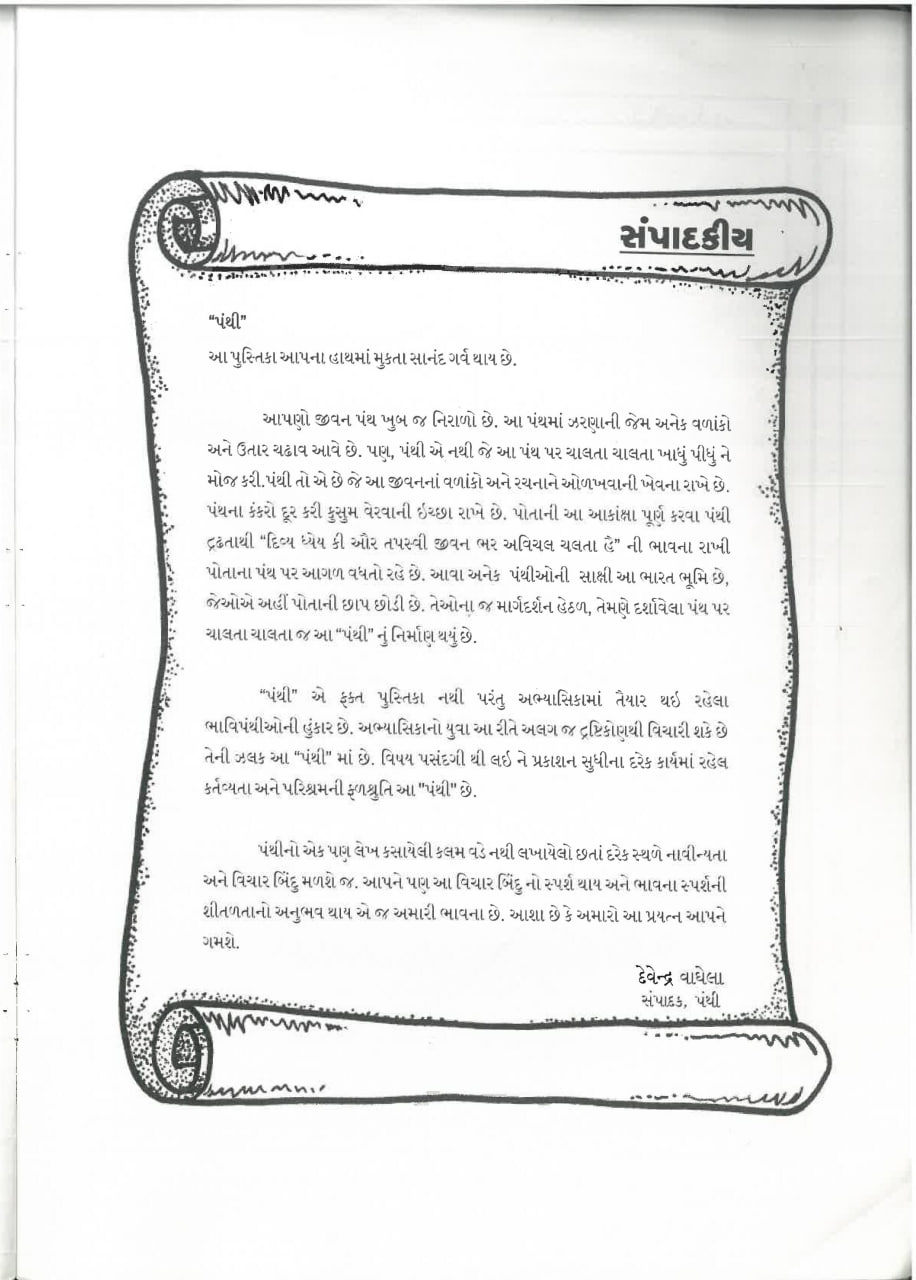 સંપાદકીય
“પંથી”
આ પુસ્તિકા આપના હાથમાં મુકતા સાનંદ ગર્વ થાય છે.
આપણો જીવન પંથ ખુબ જ નિરાળો છે. આ પંથમાં ઝરણાની જેમ અનેક વળાંકો
અને ઉતાર ચઢાવ આવે છે. પણ, પંથી એ નથી જે આ પંથ પર ચાલતા ચાલતા ખાધું પીધું ને
મોજ કરી.પંથી તો એ છે જે આ જીવનનાં વળાંકો અને રચનાને ઓળખવાની ખેવના રાખે છે.
પંથના કંકરો દૂર કરી કુસુમ વેરવાની ઇચ્છા રાખે છે. પોતાની આ આકાંક્ષા પૂર્ણ કરવા પંથી
દ્રઢતાથી “દિવ્ય ધ્યેય કી ઔર તપસ્વી જીવન ભર અવિચલ ચલતા હૈ” ની ભાવના રાખી
પોતાના પંથ પર આગળ વધતો રહે છે. આવા અનેક પંથીઓની સાક્ષી આ ભારત ભૂમિ છે,
જેઓએ અહીં પોતાની છાપ છોડી છે. તેઓના જ માર્ગદર્શન હેઠળ, તેમણે દર્શાવેલા પંથ પર
ચાલતા ચાલતા જ આ “પંથી” નું નિર્માણ થયું છે.
“પંથી” એ ફક્ત પુસ્તિકા નથી પરંતુ અભ્યાસિકામાં તૈયાર થઇ રહેલા
ભાવિપંથીઓની હુંકાર છે. અભ્યાસિકાનો યુવા આ રીતે અલગ જ દ્રષ્ટિકોણથી વિચારી શકે છે
તેની ઝલક આ “પંથી” માં છે. વિષય પસંદગી થી લઇ ને પ્રકાશન સુધીના દરેક કાર્યમાં રહેલ
કર્તવ્યતા અને પરિશ્રમની ફળશ્રુતિ આ "પંથી" છે.
પંથીનો એક પણ લેખ કસાયેલી કલમ વડે નથી લખાયેલો છતાં દરેક સ્થળે નાવીન્યતા
અને વિચાર બિંદુ મળશે જ. આપને પણ આ વિચાર બિંદુ નો સ્પર્શ થાય અને ભાવના સ્પર્શની
શીતળતાનો અનુભવ થાય એ જ અમારી ભાવના છે. આશા છે કે અમારો આ પ્રયત્ન આપને
ગમશે.
દેવેન્દ્ર વાઘેલા
સંપાદક, પંથી